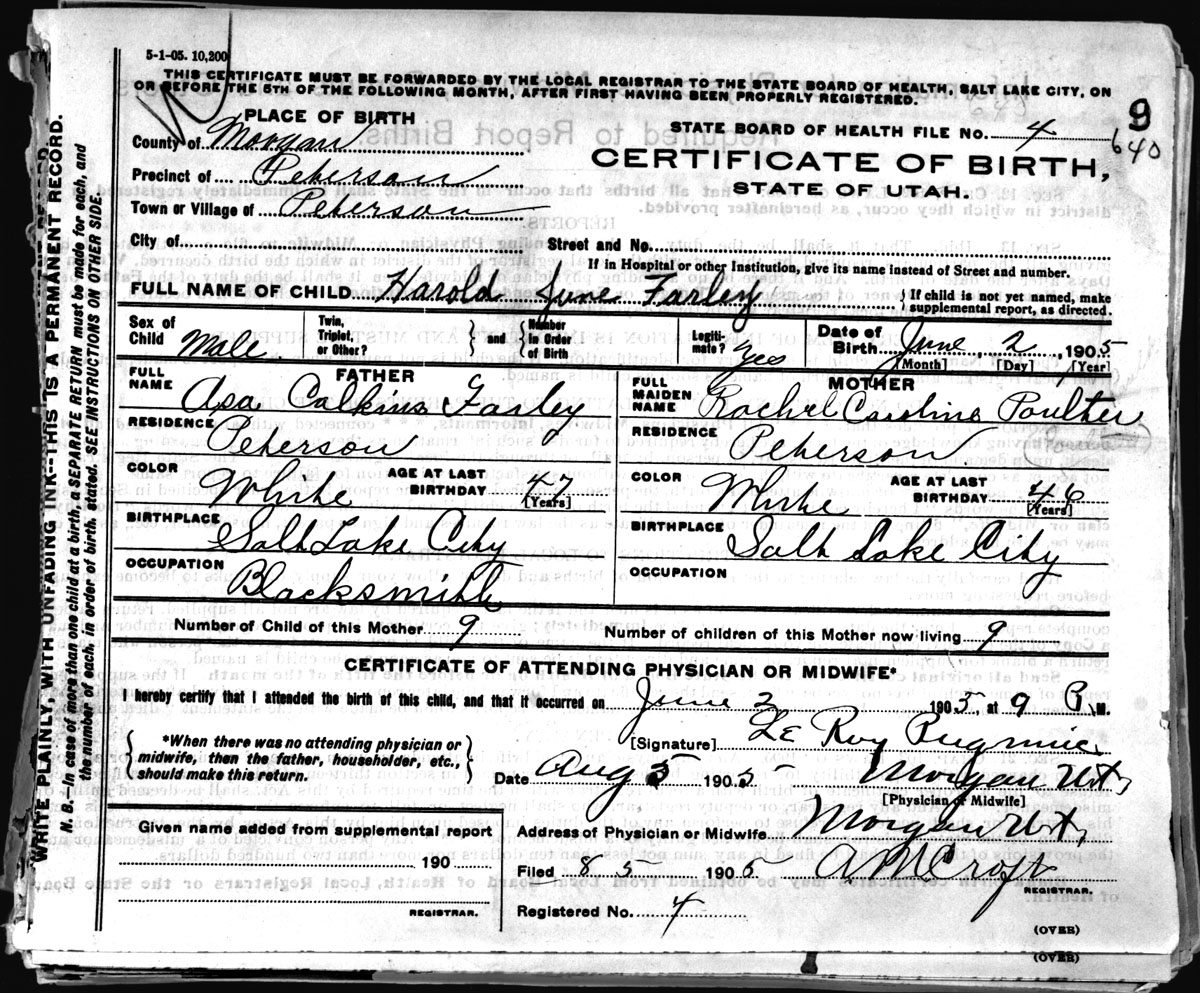 5-1-05. 10,200
THIS CERTIFICATE MUST BE FORWARDED BY THE LOCAL REGISTRAR TO THE STATE BOARD OF HEALTH, SALT LAKE CITY, ON
OR BEFORE THE 5TH OF THE FOLLOWING MONTH, AFTER FIRST HAVING BEEN PROPERLY REGISTERED.
9
640
PLACE OF BIRTH
STATE BOARD OF HEALTH FILE NO. 4
County of Morgan
CERTIFICATE OF BIRTH,
Precinct of Peterson
STATE OF UTAH.
Town or Village of Peterson
City of
Street and No.
If in Hospital or other Institution, give its name instead of Street and number.
FULL NAME OF CHILD Harold June Farley
{If child is not yet named, make
supplemental report, as directed.
Sex of Child Male
Twin, Triplet, or Other?
} and {
Number in Order of Birth
Legiti-mate? yes
Date of Birth June 2, 1905
[Month] [Day] [Year]
FATHER
FULL NAME Asa Calkins Farley
RESIDENCE Peterson
COLOR White
AGE AT LAST BIRTHDAY 47
[Years]
BIRTHPLACE Salt Lake City
OCCUPATION Blacksmith
MOTHER
FULL MAIDEN NAME Rachel Caroline Poulter
RESIDENCE Peterson
COLOR White
AGE AT LAST BIRTHDAY 46
[Years]
BIRTHPLACE Salt Lake City
OCCUPATION
Number of Child of this Mother 9
Number of children of this Mother now living 9
CERTIFICATE OF ATTENDING PHYSICIAN OR MIDWIFE*
I hereby certify that I attended the birth of this child, and that it occurred on June 2 1905, at 9 P. M.
{*When there was no attending physician or
midwife, then the father, householder, etc.,
should make this return. }
[Signature] Le Roy
Date Aug 5 1905 Morgan Ut,
[Physician or Midwife]
Given name added from supplemental report
190
REGISTRAR.
Address of Physician or Midwife Morgan Ut,
Filed 8 5 1905 A M Croft
REGISTRAR.
Registered No. 4
(OVER)
(OVER)
WRITE PLAINLY, WITH UNFADING INK--THIS IS A PERMANENT RECORD.
N. B. In case of more than one child at a birth, a SEPARATE RETURN must be made for each, and
the number of each, in order of birth, stated. SEE INSTRUCTIONS ON OTHER SIDE.